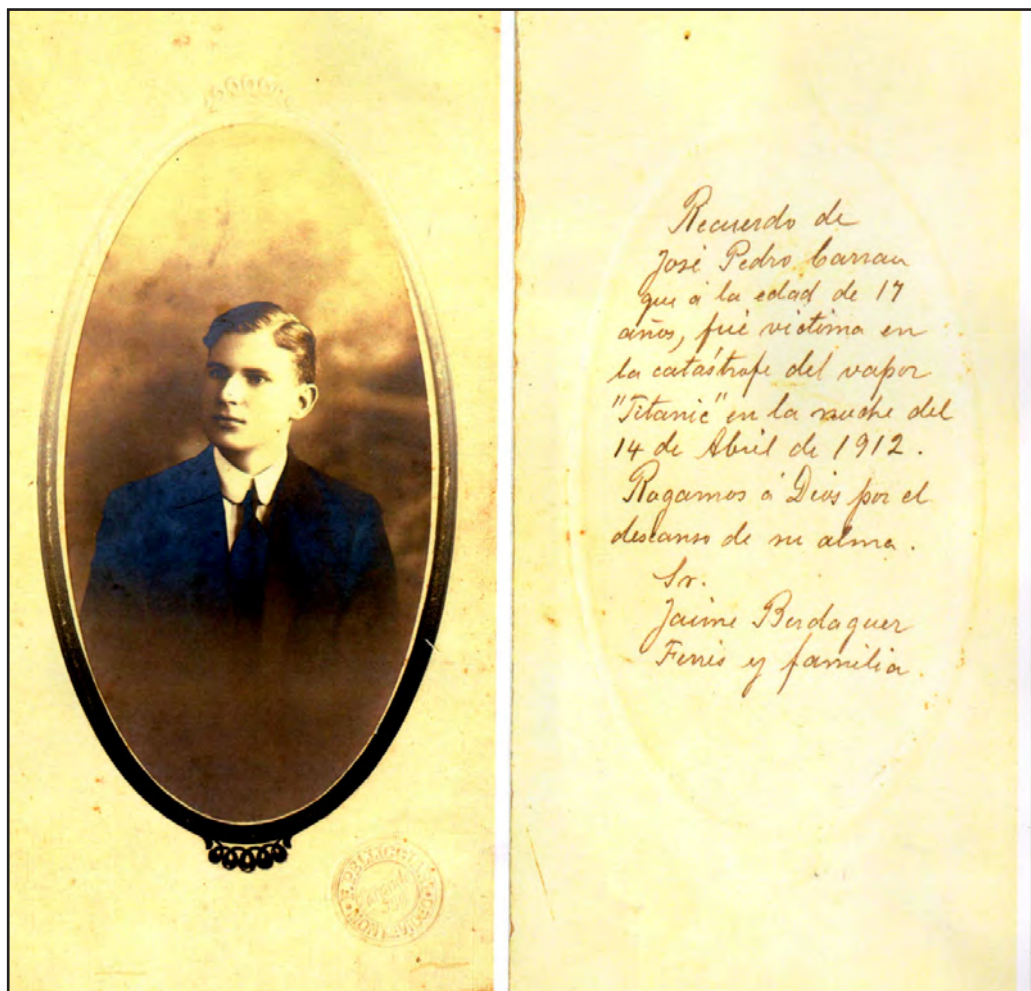 Recuerdo de
José Pedro Carrau
que á la edad de 17
años, fué victima en
la catástrofe del vapor
"Titanic" en la noche del
14 de Abril de 1912.
Rogamos á Dios por el
descanso de su alma.
Sr.
Jaime Berdaguer
Ferrés y familia.